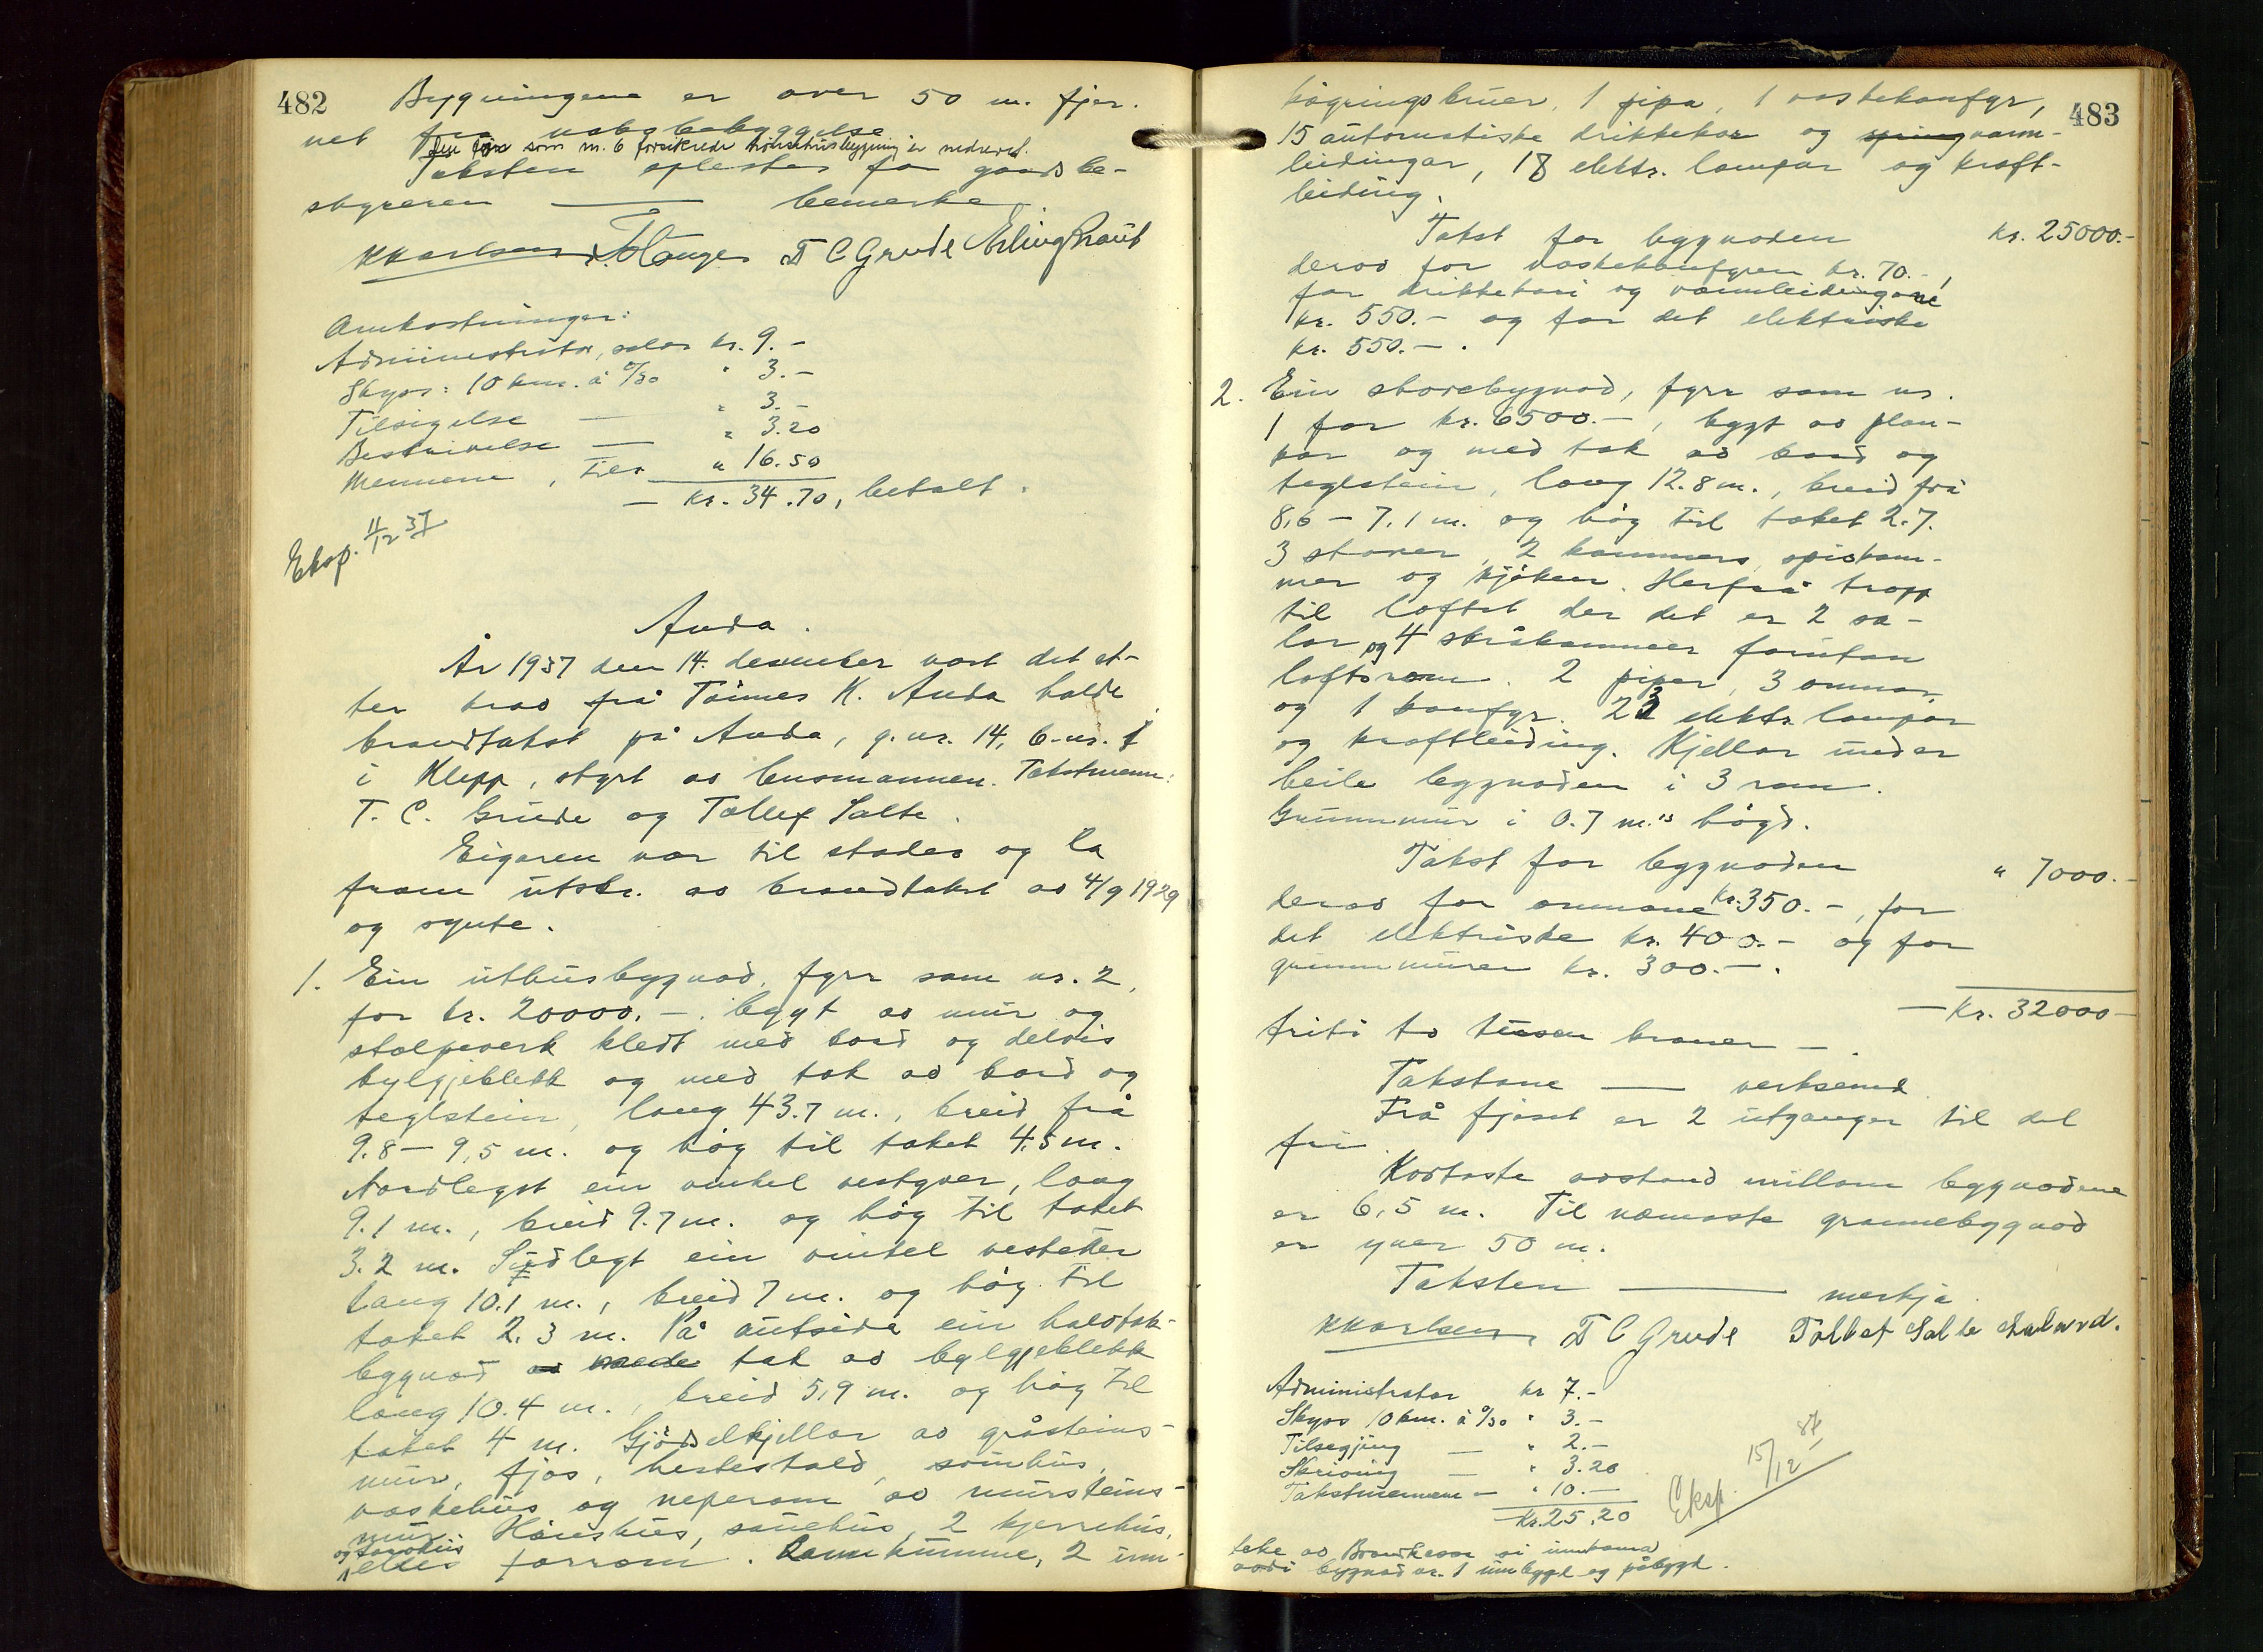 482
Bygningene er over 50 m. fjer-
net fra nabobebyggelse
Den før som nr. 6 forsikrede hönsehusbygning er nedrevet.
Taksten oplestes for gaardsbe-
styreren — bemerke
KKarlsen T. Hauge T C Grude Erling Braut
Omkostninger:
Administrator, salær kr. 9.-
Skyss: 10 km. á 0/30 " 3.-
Tilsigelse — " 3.-
Beskrivelse — " 3.20
Mennene, tils. " 16.50
— kr. 34.70, betalt.
Eksp. 11/12 37
Anda.
År 1937 den 14. desember vart det et-
ter krav frå Tönnes K. Anda halde
brandtakst på Anda, g.nr. 14, b.nr. 1
i Klepp, styrt av lensmannen. Takstmenn:
T. C. Grude og Tollef Salte.
Eigaren var til stades og la
fram utskr. av brandtakst av 4/9 1929
og synte.
1. Ein uthusbygnad, fyrr som nr. 2,
for kr. 20000.-. bygt av mur og
stolpeverk kledt med bord og delvis
bylgjeblekk og med tak av bord og
teglstein, lang 43.7 m., breid frå
9.8 — 9,5 m. og höy til taket 4,5 m.
Nordlegst ein vinkel vestyver, lang
9.1 m., breid 9.7 m. og höy til taket
3.2 m. Sudlegt ein vinkel vestetter
lang 10.1 m., breid 7 m. og höy til
taket 2.3 m. På autside ein halvtak-
bygnad av med tak av bylgjeblekk
lang 10.4 m., breid 5,9 m. og höy til
taket 4 m. Gjödselkjellar av gråsteins-
mur, fjos, hestestald, svinhus,
vaskehus og neperom av mursteins-
mur. Hönehus, sauehus, 2 kjerrehus,
og torvhus
elles forrom. Landkumme, 2 inn-
483
högringsbruer, 1 pipa, 1 vaskekomfyr,
15 automatiske drikkekar og spring vann-
leidingar, 18 elektr. lampar og kraft-
leiding.
Takst for bygnaden kr. 25000.-
derav for vaskekomfyren kr. 70.-,
for drikkekari og vannleidingane
kr. 550.- og for det elektriske
kr. 550.-.
2. Ein stovebygnad, fyrr som nr.
1 for kr. 6500.-, bygt av plan-
kar og med tak av bord og
teglstein, lang 12.8 m., breid frå
8,6 — 7,1 m. og höy til taket 2.7.
3 stover, 2 kammers, spiskam-
mer og kjöken. Herfrå tropp
til loftet der det er 2 sa-
lar og 4 skråkammer forutan
loftsrom. 2 piper, 3 omnar
og 1 komfyr. 23 elektr. lampar
og kraftleiding. Kjellar under
heile bygnaden i 3 rom.
Grunnmur i 0.7 m.'s högd.
Takst for bygnaden " 7000.-
derav for omnane kr. 350.-, for
det elektriske kr. 400.- og for
grunnmuren kr. 300.-.
— kr. 32000-
trití to tusen kroner —.
Takstane — verksemd
Frå fjoset er 2 utganger til det
fri.
Kortaste avstand millom bygnadene
er 6,5 m. Til næmaste grannebygnad
er yver 50 m.
Taksten — merkja.
KKarlsen T C Grude Tollef Salte
Administrator kr 7.-
Skyss 10 km. á 0/30 " 3.-
Tilsegjing — " 2.-
Skriving — " 3.20
Takstmennene — " 10.—
kr. 25.20
Eksp. 15/12 37
bygnad nr. 1 umbygt og påbygt.